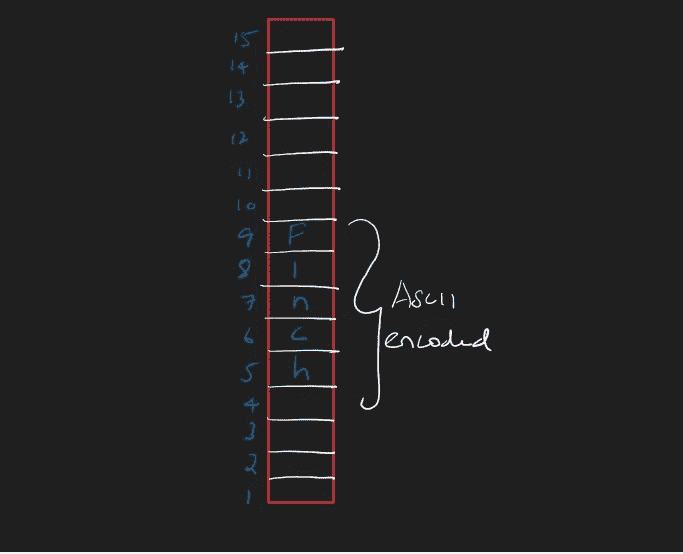 15
14
13
12
11
10
9 F
8 l
7 n
6 c
5 h
4
3
2
1
Ascii
encoded